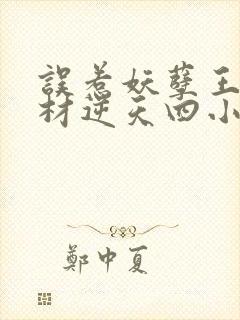 誤惹妖孽王
材逆天四小
鄭中夏